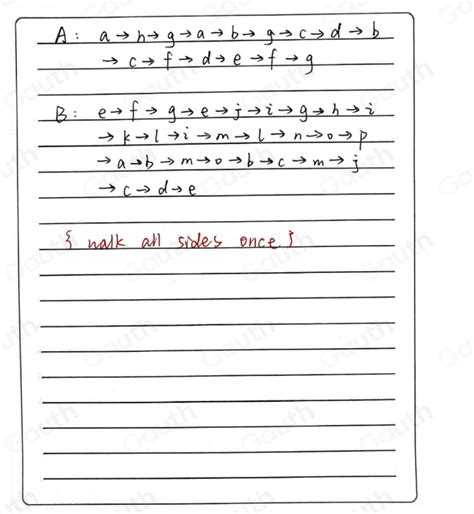 A: a→h→g→a→b→g→c→d→b
→c→f→d→e→f→g
B: e→f→g→e→j→i→g→h→i
→k→l→i→m→l→n→o→p
→a→b→m→o→b→c→m→j
→c→d→e
{ walk all sides once }
Gauth